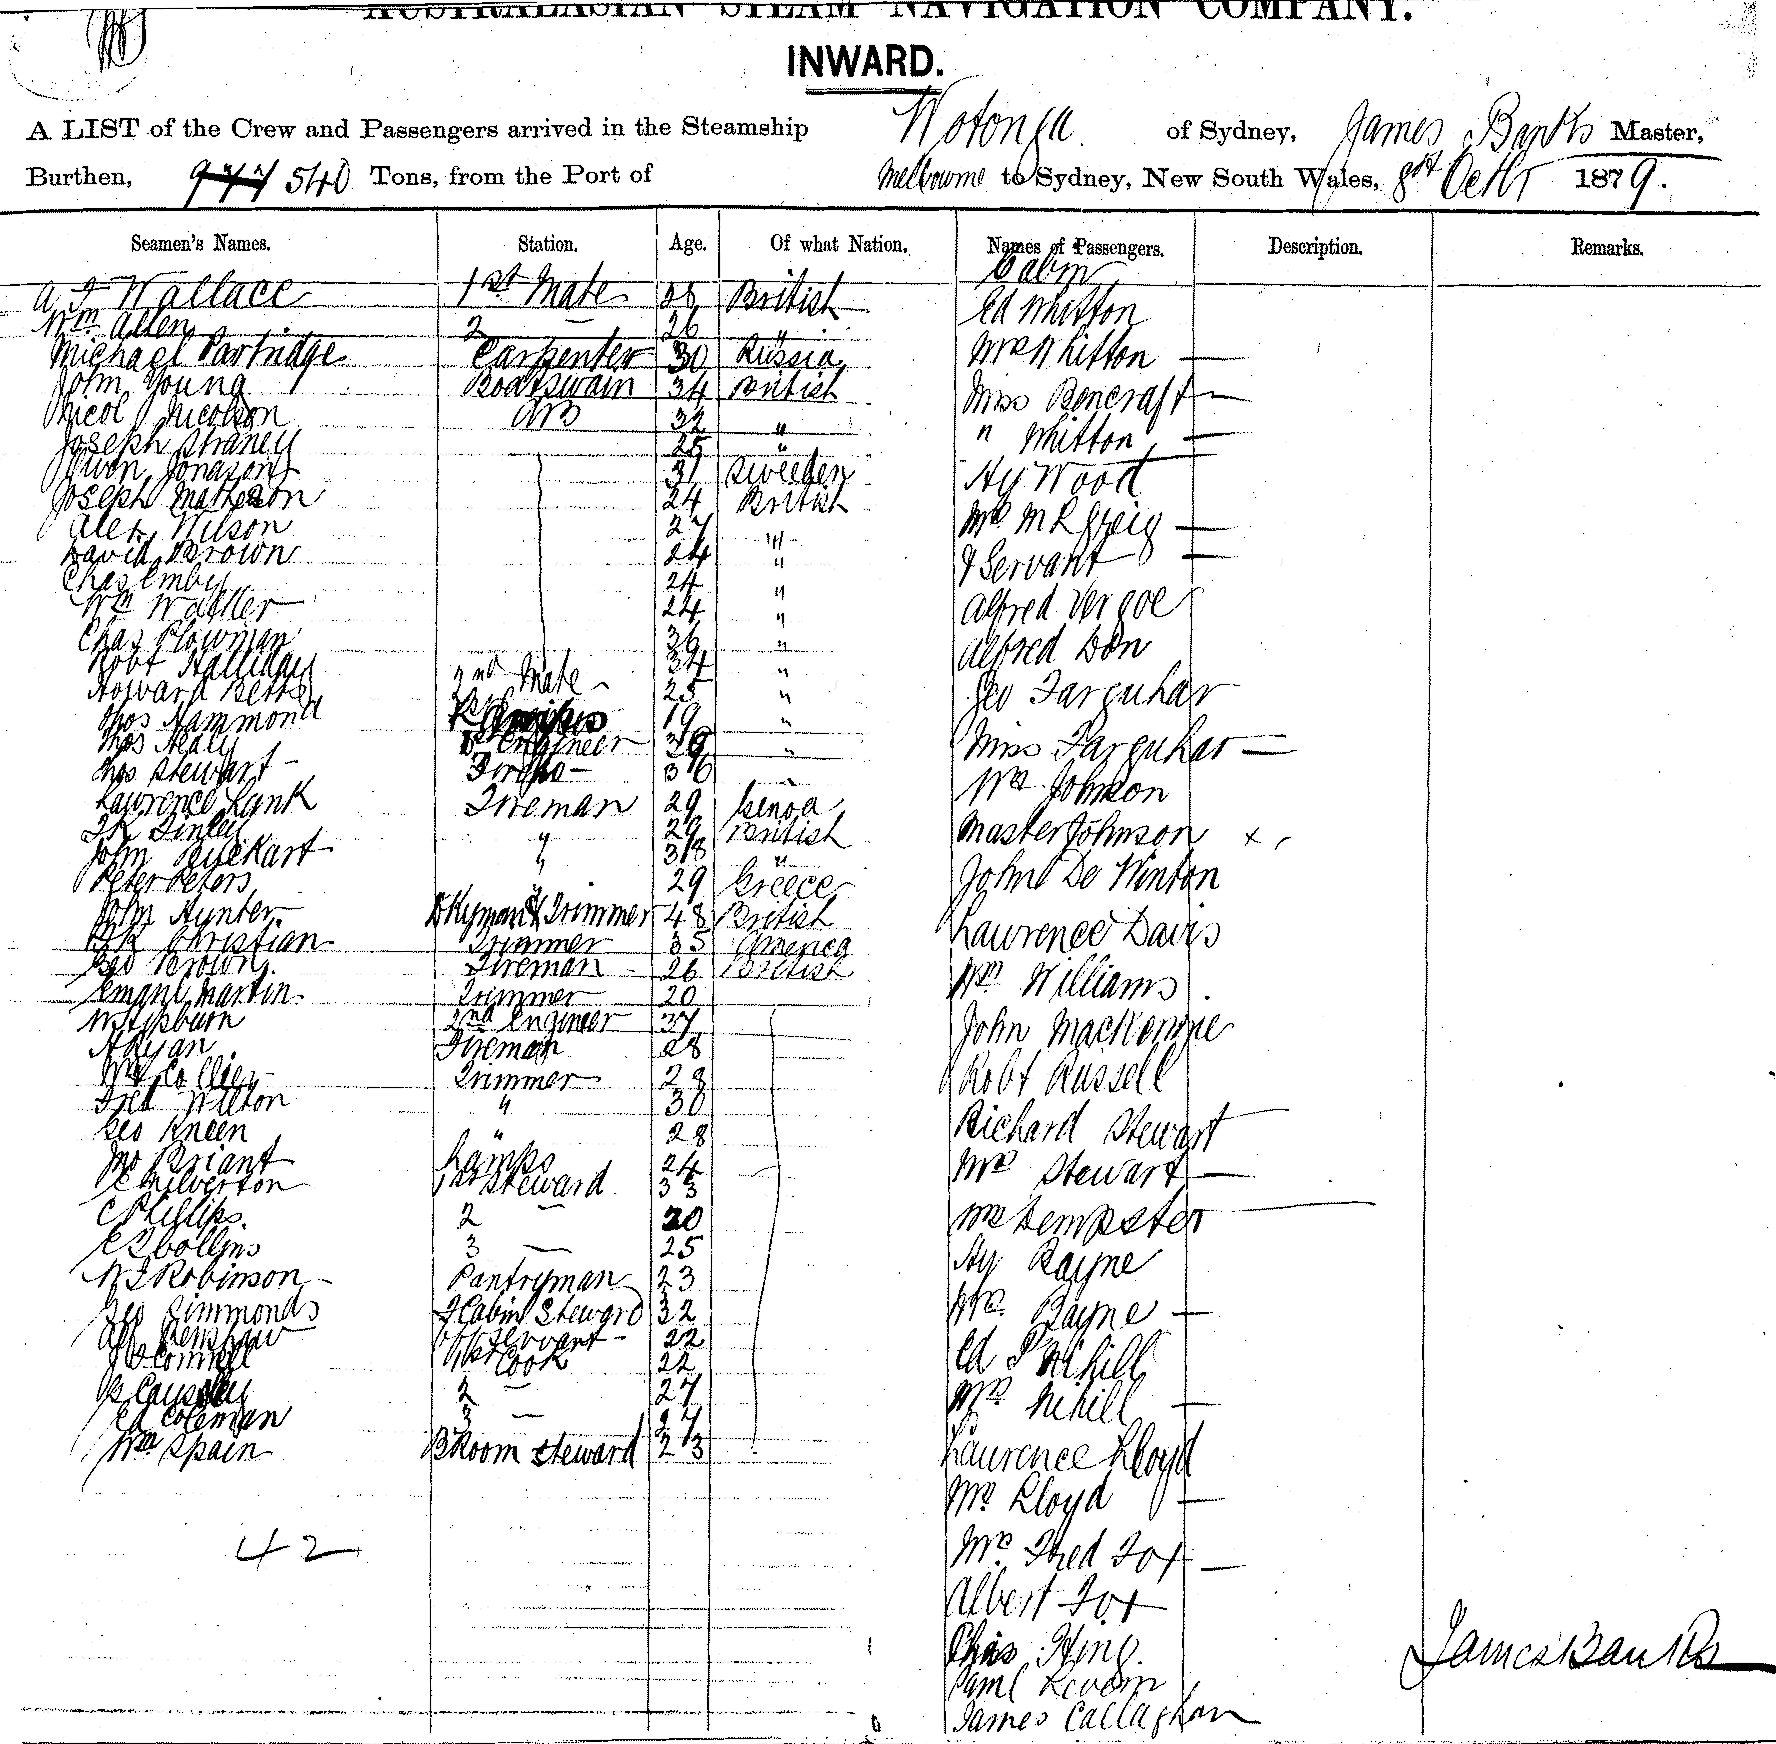 AUSTRALASIAN STEAM NAVIGATION COMPANY.
INWARD.
A LIST of the Crew and Passengers arrived in the Steamship Wotonga of Sydney, James Banks Master,
Burthen, 540 Tons, from the Port of Melbourne to Sydney, New South Wales, 8th Octbr 1879.
Seamen's Names. Station. Age. Of what Nation. Names of Passengers. Description. Remarks.
Cabin
A J Wallace 1st Mate British Ed Whitton
Wm Allen 2 — 26 "
Michael Partridge Carpenter 30 Russia Mrs Whitton —
John Young Boatswain 34 British Miss Bencraft —
Nicol Nicolson AB 32 " " Whitton —
Joseph Straney 25 "
Owen Jonason 31 Sweeden Hy Wood
Joseph Matheson 24 British
Alex Wilson 27 " Mrs M R Greig —
David Brown 24 " & Servant —
Chas Emby 24 "
Wm Walker 24 " Alfred Vergoe
Chas Plowman 36 " Alfred Don
Robt Halliday 34 "
Howard Betts 2nd Mate 25 " Geo Farquhar
Thos Hammond 19 "
Thos Nealy Engineer 39 " Miss Farquhar —
Thos Stewart 36 " Johnson
Lawrence Lynk Fireman 29 Genoa
Finley " 29 British Master Johnson x
John Ruckart " 38 "
Peter Peters " 29 Greece John De Winton
John Hynter Dkyman & Trimmer 48 British Lawrence Davis
Christian Trimmer 35 America
Geo Brown Fireman 26 British Wm Williams
Emanl Martin Trimmer 20
W Hepburn 2nd Engineer 37 John MacKenzie
A Ryan Fireman 28
Wm Collier Trimmer 28 Robt Russell
Fred Wilton " 30
Geo Kneen " 28 Richard Stewart
Jno Briant Lamps 24 Mrs Stewart —
C Milverton 1st Steward 33
C Phillips 2 — 20 Wm Dempster
C B Collins 3 — 25 Hy Rayne
W J Robinson Pantryman 23
Geo Simmonds F Cabin Steward 32 Mrs Rayne —
Alf Renshaw Servant 22 Ed Nihill
J O'Connell 1st Cook 22
2 — 27 Mrs Nihill —
Ed Coleman 3 —
Wm Spain B Room Steward 23 Laurence Lloyd
Mrs Lloyd —
42
Mrs Fred Fox —
Albert Fox
Chas King
James Banks
Saml
James Callaghan